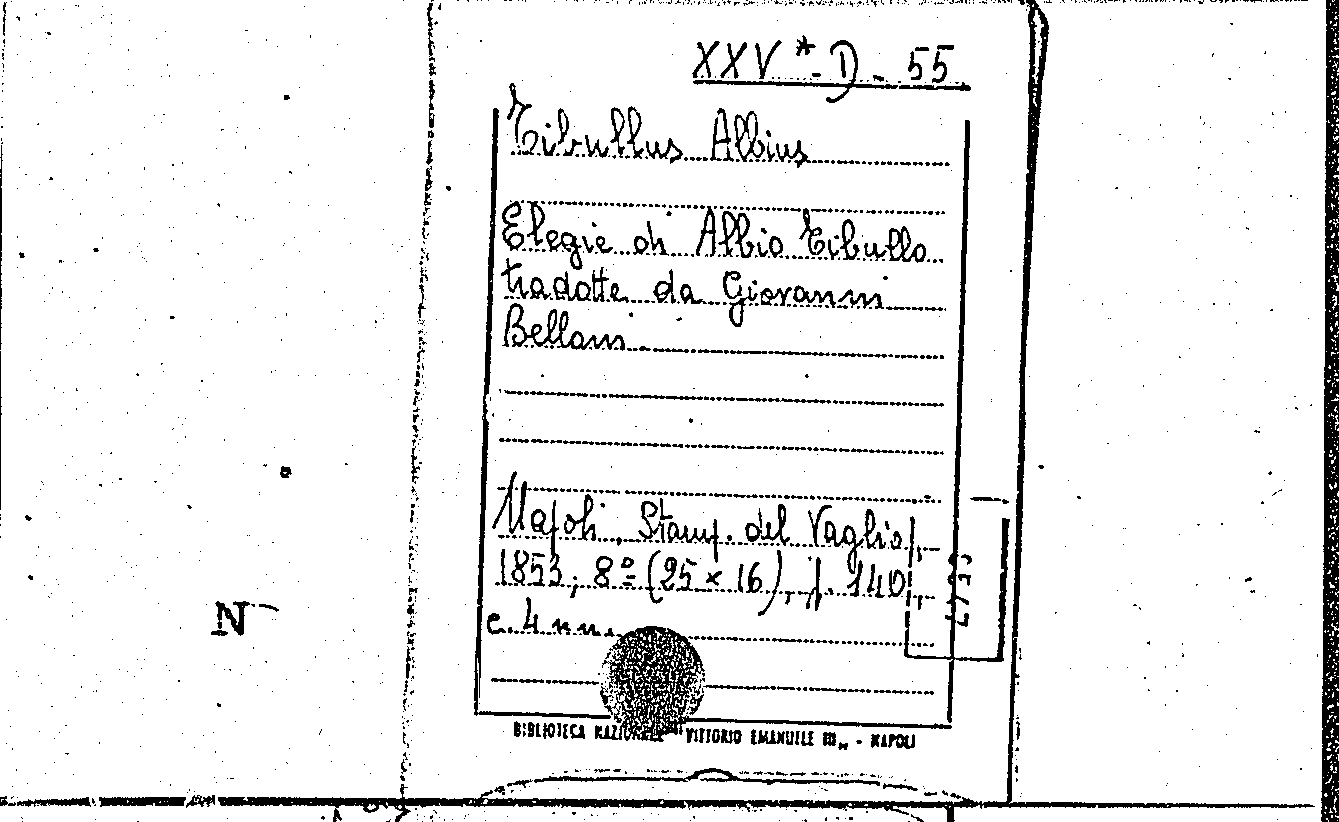 XXV * - D - 55
Tibullus Albius
Elegie di Albio Tibullo
tradotte da Giovanni
Bellomi.
Napoli, Stamp. del Vaglio,
1853, 8º (25 x 16), p. 140,
c. 4 nn.
BIBLIOTECA NAZIONALE "VITTORIO EMANUELE III" - NAPOLI
N